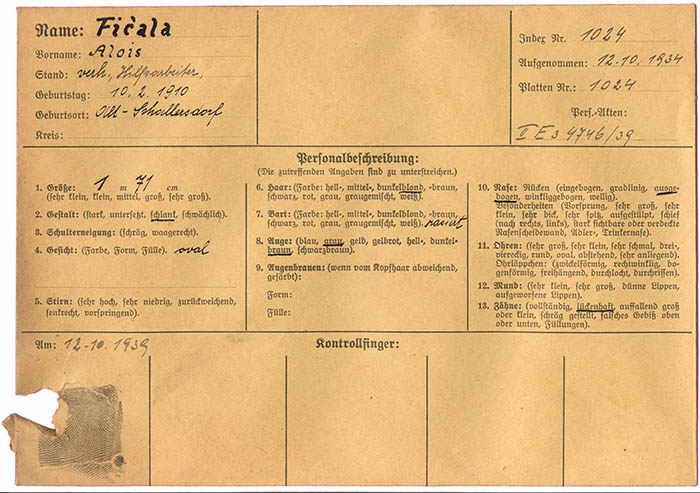 Name: Fičala
Vorname: Alois
Stand: verh., Hilfsarbeiter,
Geburtstag: 10. 2. 1910
Geburtsort: Alt-Schallersdorf
Kreis:
Index Nr. 1024
Aufgenommen: 12.10. 1934
Platten Nr.: 1024
Pers.-Akten:
II E 3 4746/39
Personalbeschreibung:
(Die zutreffenden Angaben sind zu unterstreichen.)
1. Größe: 1 m 71 cm
(sehr klein, klein, mittel, groß, sehr groß).
2. Gestalt: (stark, untersetzt, schlank, schwächlich).
3. Schulterneigung: (schräg, waagerecht).
4. Gesicht: (Farbe, Form, Fülle). oval
5. Stirn: (sehr hoch, sehr niedrig, zurückweichend,
senkrecht, vorspringend).
6. Haar: (Farbe: hell-, mittel-, dunkelblond, -braun,
schwarz, rot, grau, graugemischt, weiß).
7. Bart: (Farbe: hell-, mittel-, dunkelblond, -braun,
schwarz, rot, grau, graugemischt, weiß). rasiert
8. Auge: (blau, grau, gelb, gelbrot, hell-, dunkel-
braun, schwarzbraun).
9. Augenbrauen: (wenn vom Kopfhaar abweichend,
gefärbt):
Form:
Fülle:
10. Nase: Rücken (eingebogen, gradlinig, ausge-
bogen, winkliggebogen, wellig).
Besonderheiten (Vorsprung, sehr groß, sehr
klein, sehr dick, sehr spitz, aufgestülpt, schief
(nach rechts, links), stark sichtbare oder verdeckte
Nasenscheidewand, Adler-, Trinkernase).
11. Ohren: (sehr groß, sehr klein, sehr schmal, drei-,
viereckig, rund, oval, abstehend, sehr anliegend).
Ohrläppchen: (zwickelförmig, rechtwinklig, bo-
genförmig, freihängend, durchlocht, durchrissen).
12. Mund: (sehr klein, sehr groß, dünne Lippen,
aufgeworfene Lippen).
13. Zähne: (vollständig, lückenhaft, auffallend groß
oder klein, schräg gestellt, falsches Gebiß oben
oder unten, Füllungen).
Am: 12.10. 1939
Kontrollfinger: